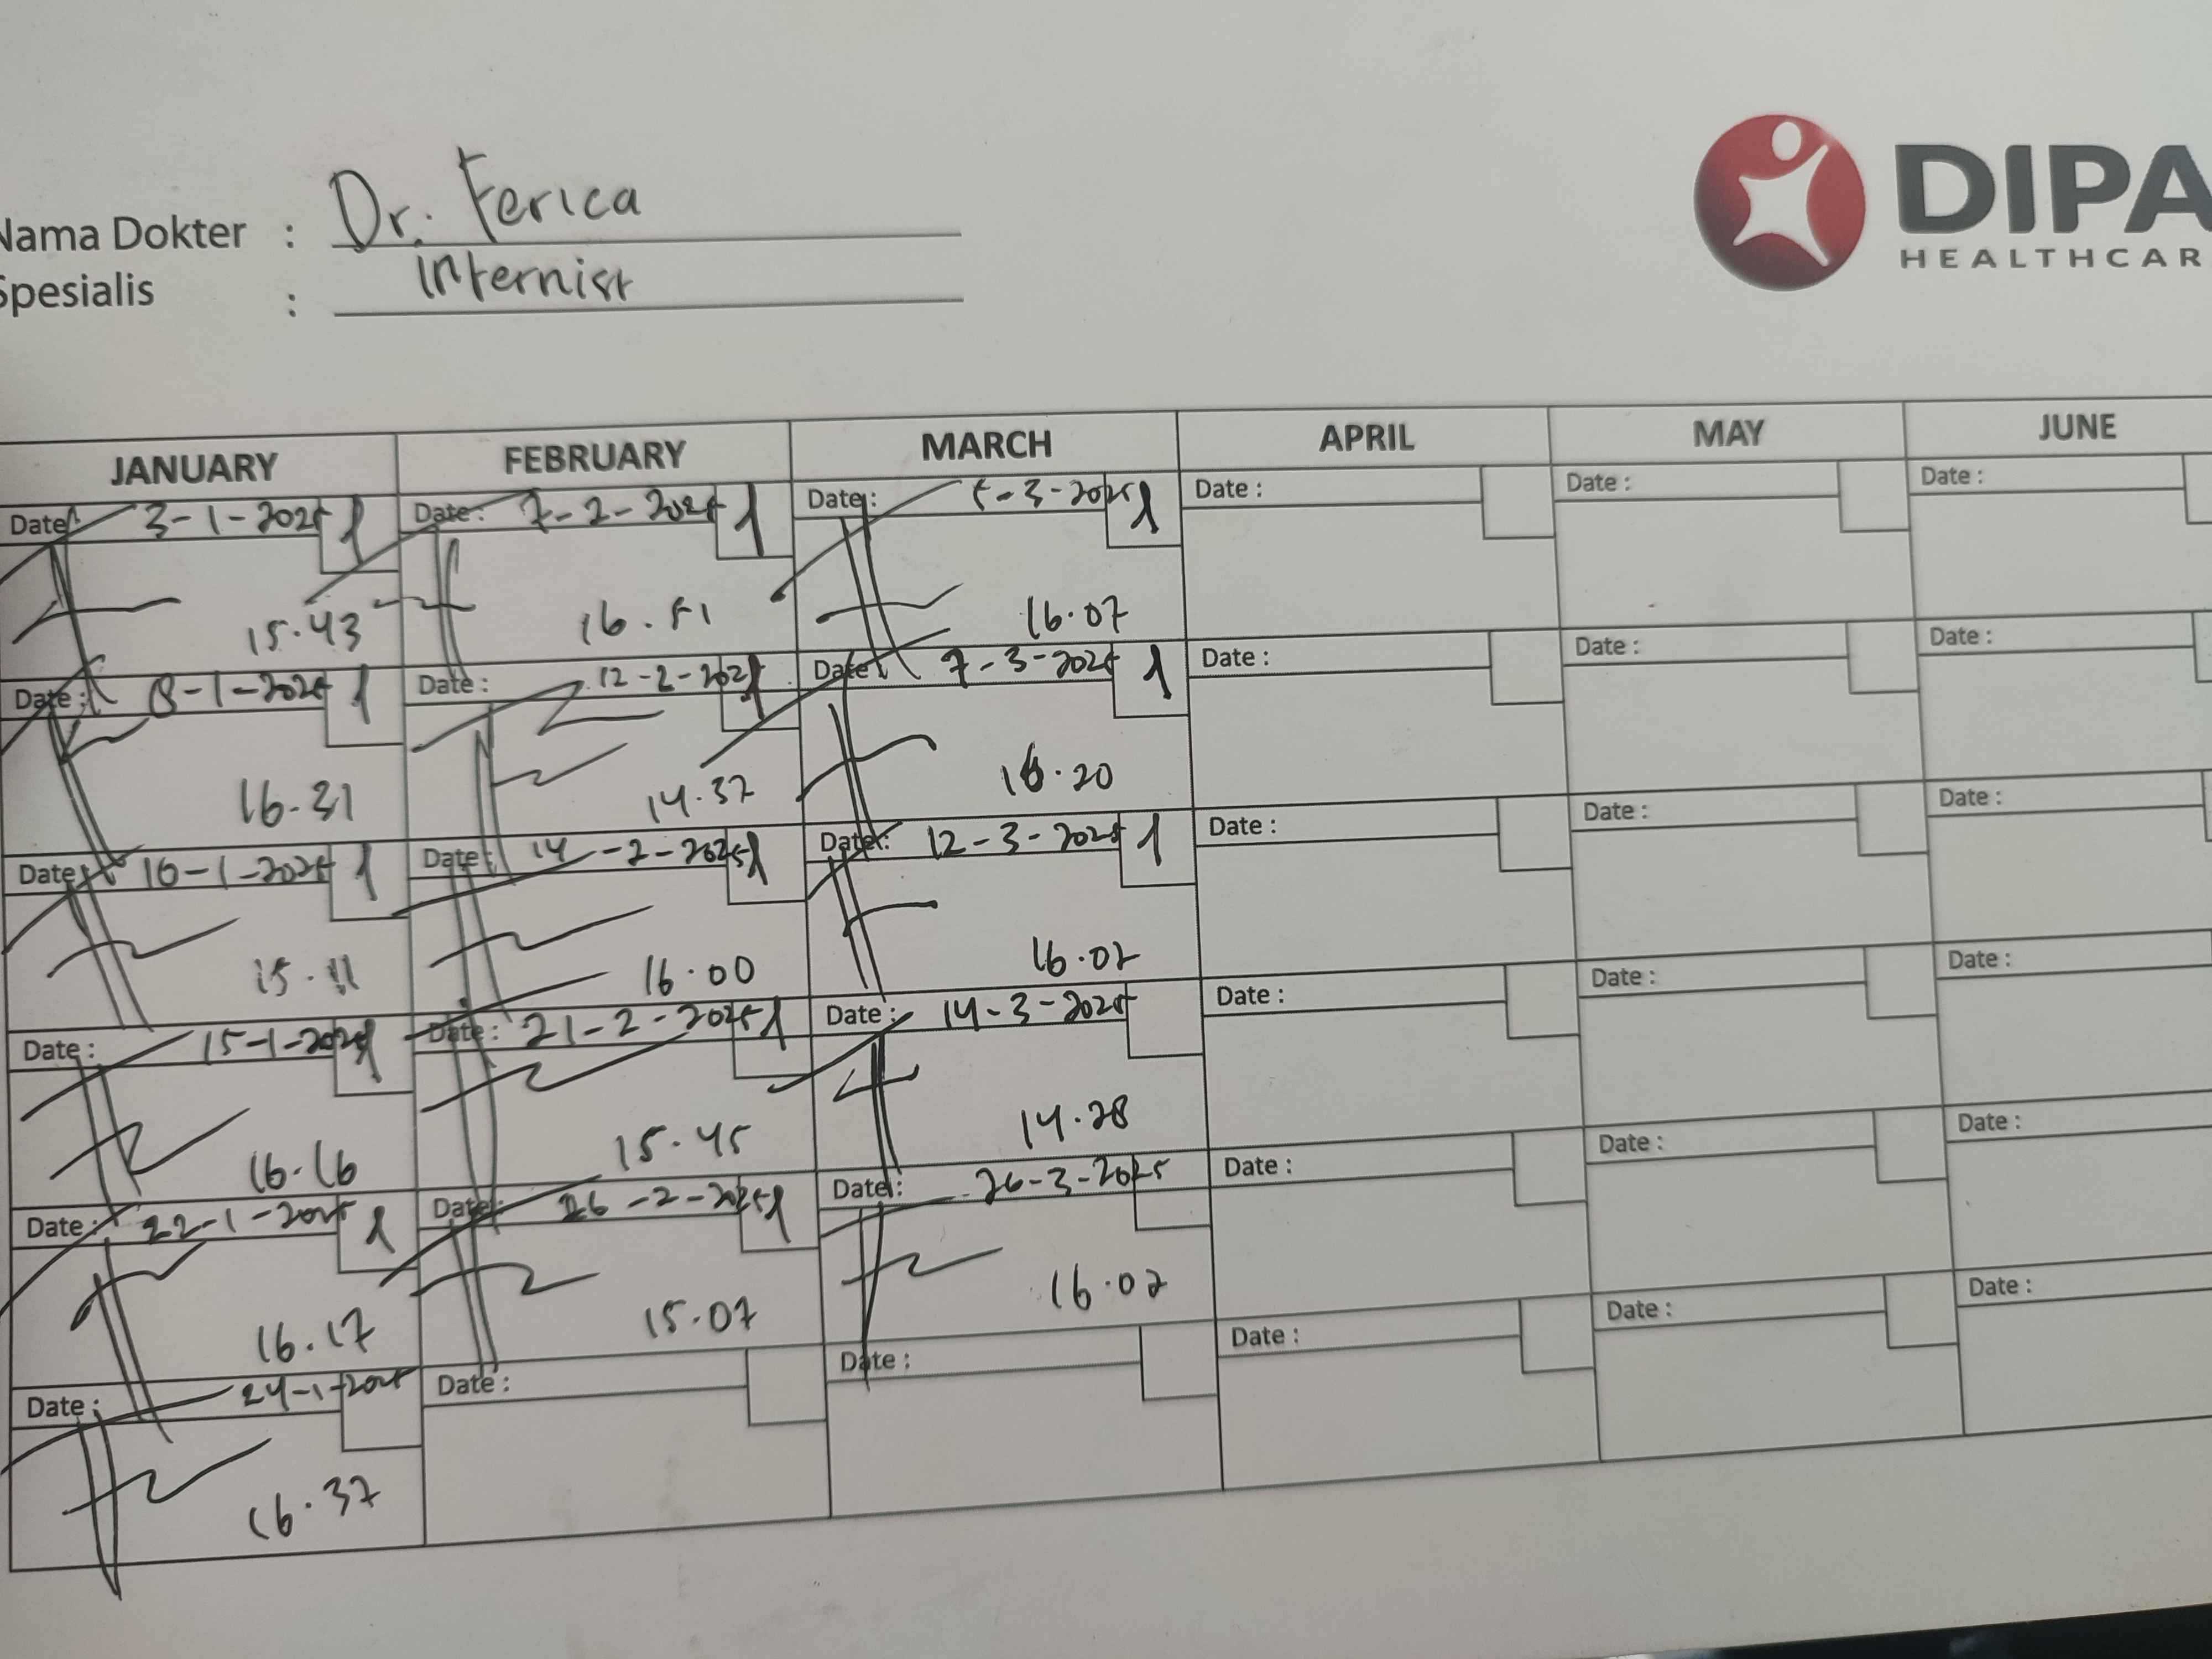 Nama Dokter : Dr. Ferica
Spesialis : Internist
DIPA
HEALTHCAR
JANUARY FEBRUARY MARCH APRIL MAY JUNE
Date: 3-1-2025 1 Date: 7-2-2025 1 Date: 5-3-2025 1 Date : Date : Date :
15.43 16.51 16.07
Date: 8-1-2025 1 Date : 12-2-2025 1 Date: 7-3-2025 1 Date : Date : Date :
16.31 14.37 16.20
Date: 10-1-2025 1 Date: 14-2-2025 1 Date: 12-3-2025 1 Date : Date : Date :
15.11 16.00 16.02
Date : 15-1-2025 1 Date: 21-2-2025 1 Date : 14-3-2025 Date : Date : Date :
16.16 15.45 14.28
Date: 22-1-2025 1 Date: 26-2-2025 1 Date : 26-3-2025 Date : Date : Date :
16.17 15.07 16.02
Date : 24-1-2025 Date : Date : Date : Date : Date :
16.37